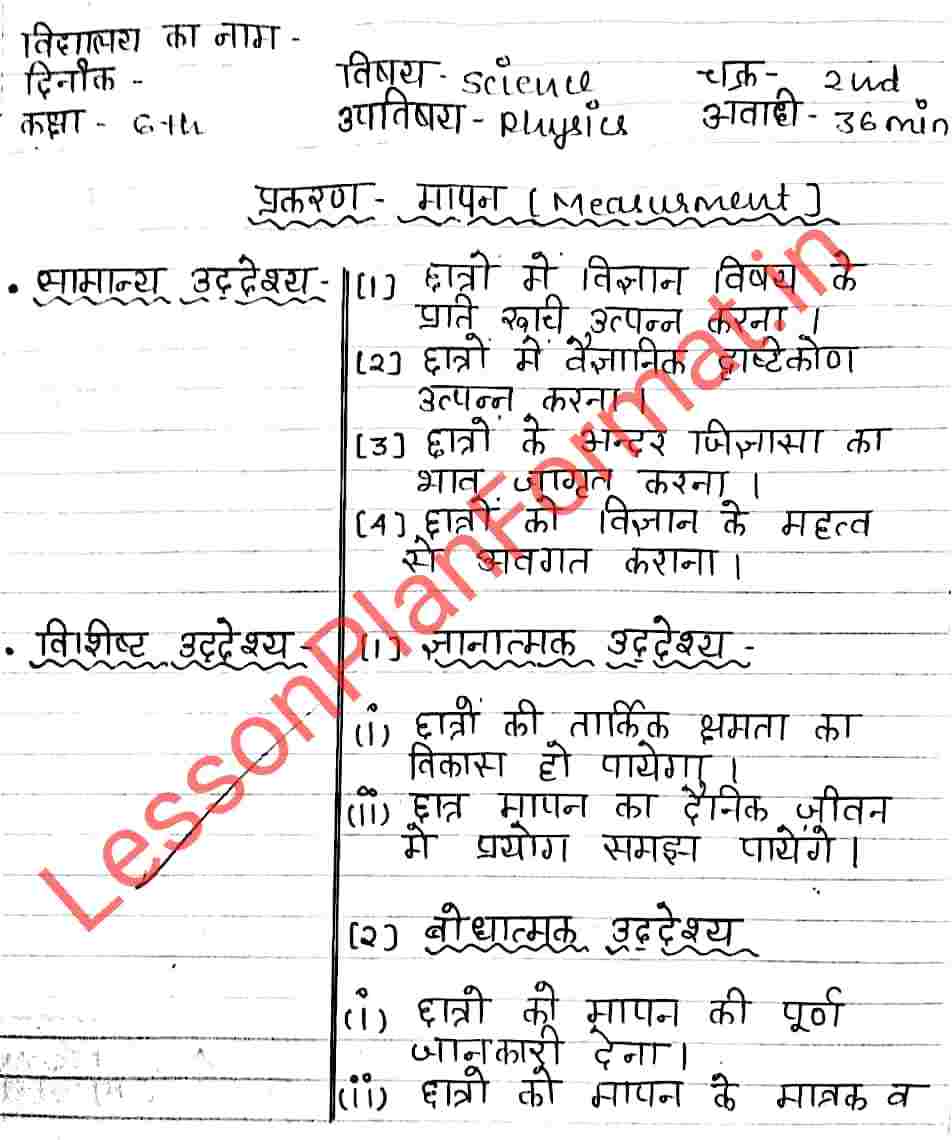 विद्यालय का नाम -
दिनाँक - विषय - Science चक्र - 2nd
कक्षा - 6th उपविषय - Physics अवधी - 36 min
प्रकरण - मापन [Measurment]
• सामान्य उद्देश्य - (1) छात्रों में विज्ञान विषय के
प्रति रूची उत्पन्न करना ।
(2) छात्रों में वैज्ञानिक दृष्टिकोण
उत्पन्न करना ।
(3) छात्रों के अन्दर जिज्ञासा का
भाव जागृत करना ।
(4) छात्रों को विज्ञान के महत्व
से अवगत कराना ।
• विशिष्ट उद्देश्य - (1) ज्ञानात्मक उद्देश्य -
(i) छात्रों की तार्किक क्षमता का
विकास हो पायेगा ।
(ii) छात्र मापन का दैनिक जीवन
में प्रयोग समझ पायेंगे ।
(2) बोधात्मक उद्देश्य
(i) छात्रो को मापन की पूर्ण
जानकारी देना ।
(ii) छात्रो को मापन के मात्रक व
LessonPlanFormat.in